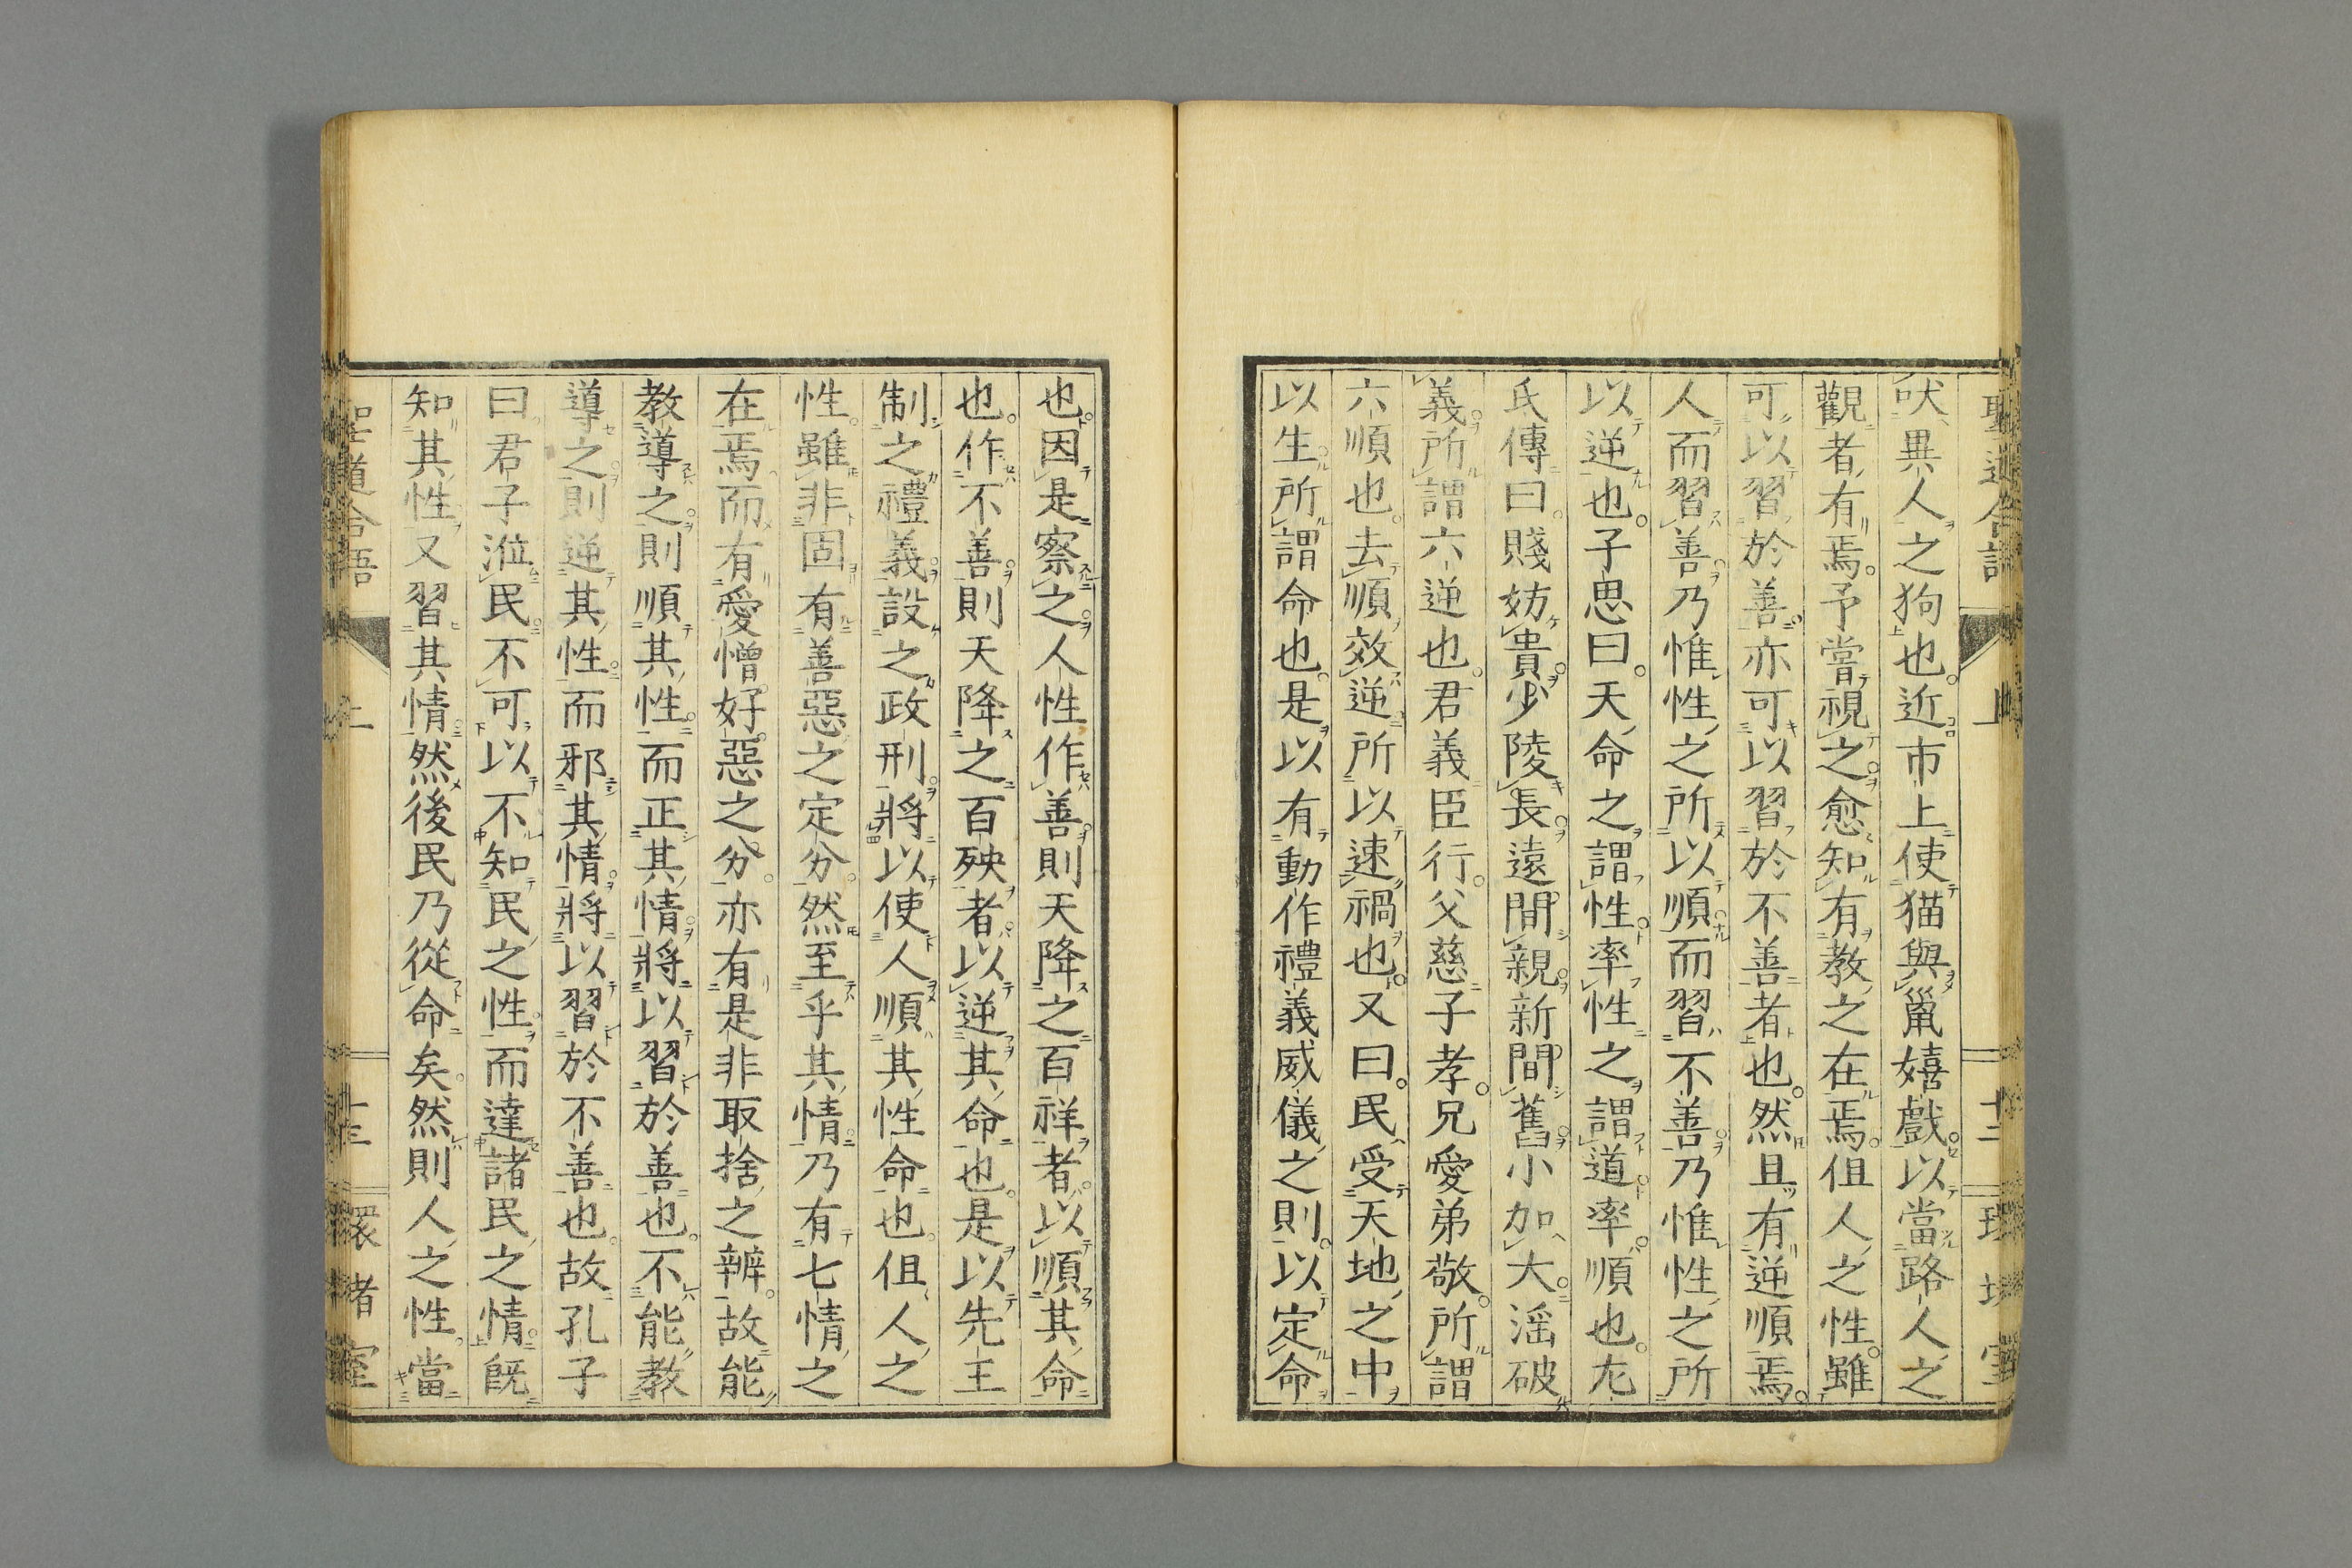 吠異人之狗也近市上使猫與鼠嬉戲以當路人之
觀者有焉予嘗視之愈知有教之在焉但人之性雖
可以習於善亦可以習於不善者也然且有逆順焉
人而習善乃惟性之所以順而習不善乃惟性之所
以逆也子思曰天命之謂性率性之謂道率順也左
氏傳曰賤妨貴少陵長遠間親新間舊小加大淫破
義所謂六逆也君義臣行父慈子孝兄愛弟敬所謂
六順也去順效逆所以速禍也又曰民受天地之中
以生所謂命也是以有動作禮義威儀之則以定命
也因是察之人性作善則天降之百祥者以順其命
也作不善則天降之百殃者以逆其命也是以先王
制之禮義設之政刑將以使人順其性命也但人之
性雖非固有善惡之定分然至乎其情乃有七情之
在焉而有愛憎好惡之分亦有是非取捨之辨故能
教導之則順其性而正其情將以習於善也不能教
導之則逆其性而邪其情將以習於不善也故孔子
曰君子涖民不可以不知民之性而達諸民之情既
知其性又習其情然後民乃從命矣然則人之性當
道合語 上 十二 環堵室